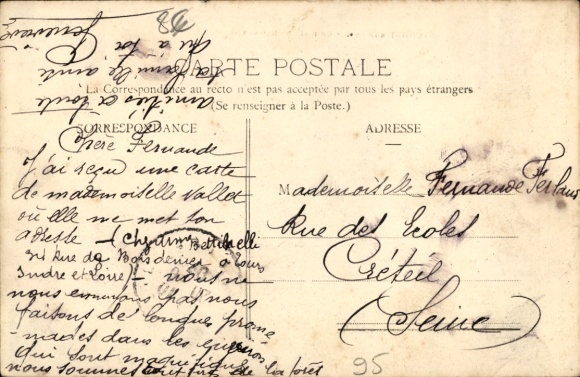 CARTE POSTALE
La Correspondance au recto n'est pas acceptée par tous les pays étrangers
(Se renseigner à la Poste.)
CORRESPONDANCE
ADRESSE
Chère Fernande
J'ai reçu une carte
de mademoiselle Vallet
ou elle me met son
adresse - (chez Mme Bettinelli
Rue de Bois denier à Tours
Indre et Loire) - nous ne
nous ennuyons pas nous
faisons de longues prome
nades dans les environs
qui sont magnifiques
nous sommes tout près de la forêt
amitiés a toute
ta famille amie
à toi
Geneviève
Mademoiselle Fernande
Rue des Ecoles
Créteil
(Seine)
84
95